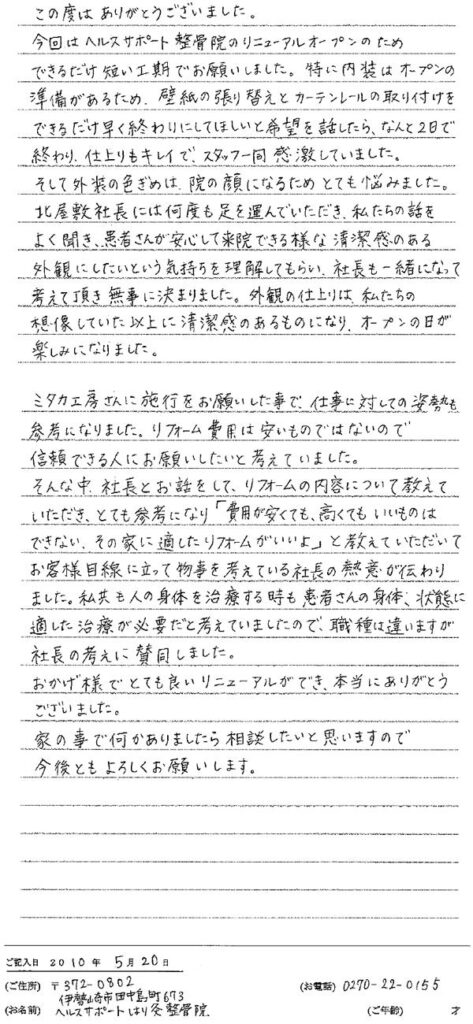 この度は ありがとうございました。
今回は ヘルスサポート整骨院のリニューアルオープンのため
できるだけ短い工期でお願いしました。特に内装はオープンの
準備があるため、壁紙の張り替えとカーテンレールの取り付けを
できるだけ早く終わりにしてほしいと希望を話したら、なんと2日で
終わり、仕上りもキレイで、スタッフ一同感激していました。
そして外装の色ぎめは、院の顔になるためとても悩みました。
北屋敷社長には何度も足を運んでいただき、私たちの話を
よく聞き、患者さんが安心して来院できる様な清潔感のある
外観にしたいという気持ちを理解してもらい、社長も一緒になって
考えて頂き無事に決まりました。外観の仕上りは、私たちの
想像していた以上に清潔感のあるものになり、オープンの日が
楽しみになりました。
ミタカ工房さんに施行をお願いした事で、仕事に対しての姿勢も
参考になりました。リフォーム費用は安いものではないので
信頼できる人にお願いしたいと考えていました。
そんな中、社長とお話をして、リフォームの内容について教えて
いただき、とても参考になり「費用が安くても、高くてもいいものは
できない、その家に適したリフォームがいいよ」と教えていただいて
お客様目線に立って物事を考えている社長の熱意が伝わり
ました。私共も人の身体を治療する時も患者さんの身体、状態に
適した治療が必要だと考えていましたので、職種は違いますが
社長の考えに賛同しました。
おかげ様でとても良いリニューアルができ、本当にありがとう
ございました。
家の事で何かありましたら相談したいと思いますので
今後ともよろしくお願いします。
ご記入日 2010年 5月20日
(ご住所) 〒372-0802 (お電話) 0270-22-0155
伊勢崎市田中島町673
(お名前) ヘルスサポートはり灸整骨院 (ご年齢) 才